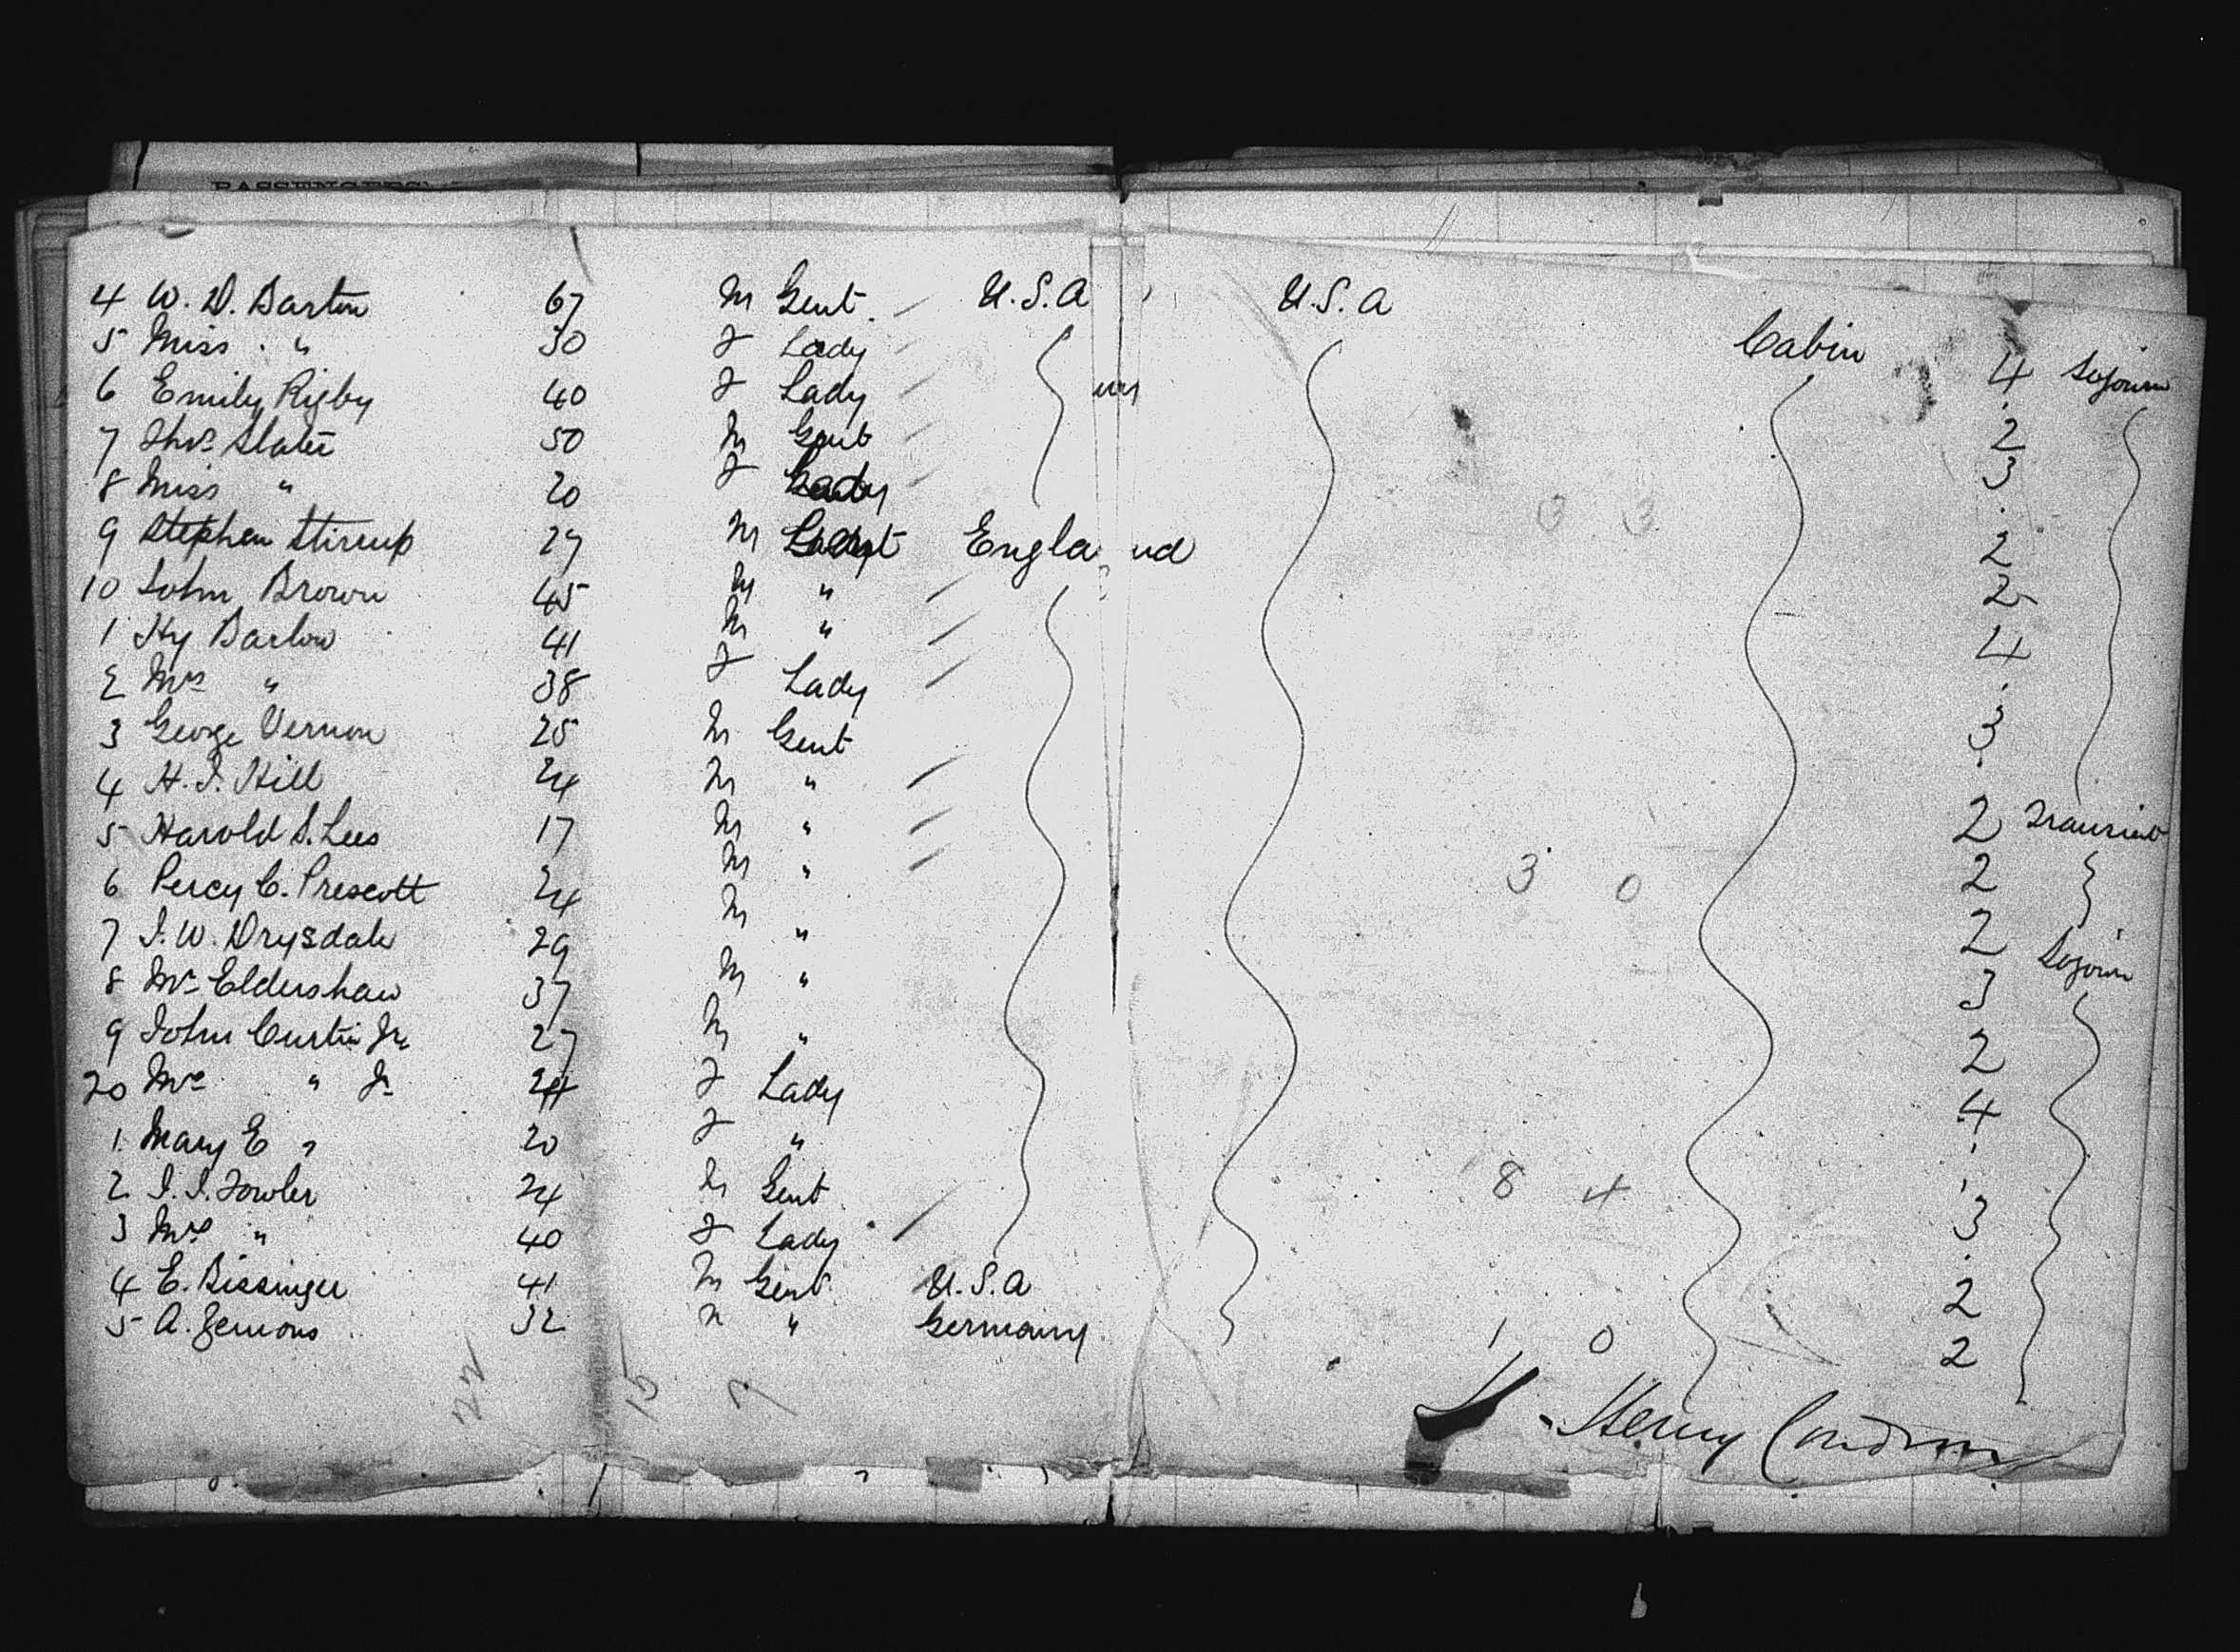 PASSENGERS
4 W. D. Barton 67 M Gent. U.S.A U.S.A
5 Miss " 30 F Lady Cabin 4 Sojourn
6 Emily Rigby 40 F Lady
7 Thos Slater 50 M Gent 2
8 Miss " 20 F Lady 3
9 Stephen Stirrup 29 M Gent England 2
10 John Brown 45 M " 2
1 Hy Barlow 41 M " 4
2 Mrs " 38 F Lady
3 George Vernon 25 M Gent 3
4 H. J. Hill 24 M "
5 Harold S. Lees 17 M " 2 Transient
6 Percy C. Prescott 24 M " 3 0 2
7 J. W. Drysdale 29 M " 2 Sojourn
8 Mr Eldershaw 37 M " 3
9 John Curtis Jr 27 M " 2
20 Mrs " Jr 24 F Lady 4
1 Mary E " 20 F "
2 J. J. Fowler 24 M Gent 8 4 3
3 Mrs " 40 F Lady
4 E. Bissinger 41 M Gent U.S.A 2
5 A. 32 M " Germany 1 0 2
22 15 7
Henry